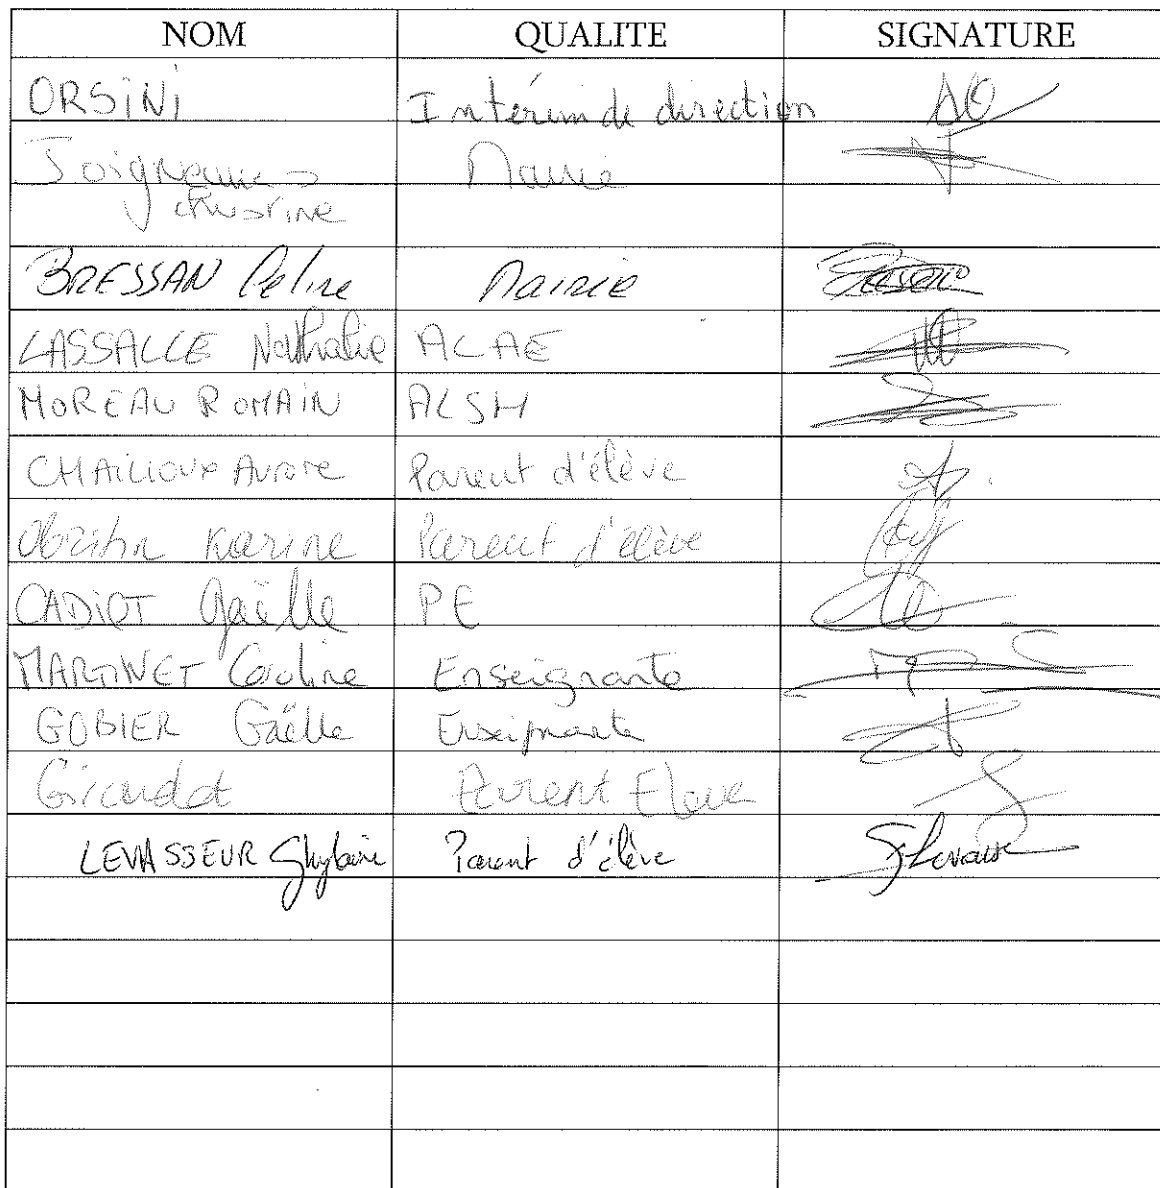 NOM QUALITE SIGNATURE
ORSINI Intérim de direction
Mairie
BRESSAN Celine Mairie
LASSALLE Nathalie ALAE
MOREAU ROMAIN ALSH
CHAILLOUX Aurore Parent d'élève
Karine Parent d'élève
CADIOT Gaëlle PE
MARTINET Caroline Enseignante
GOBIER Gaëlle Enseignante
Parent Eleve
LEVASSEUR Ghylaine Parent d'élève